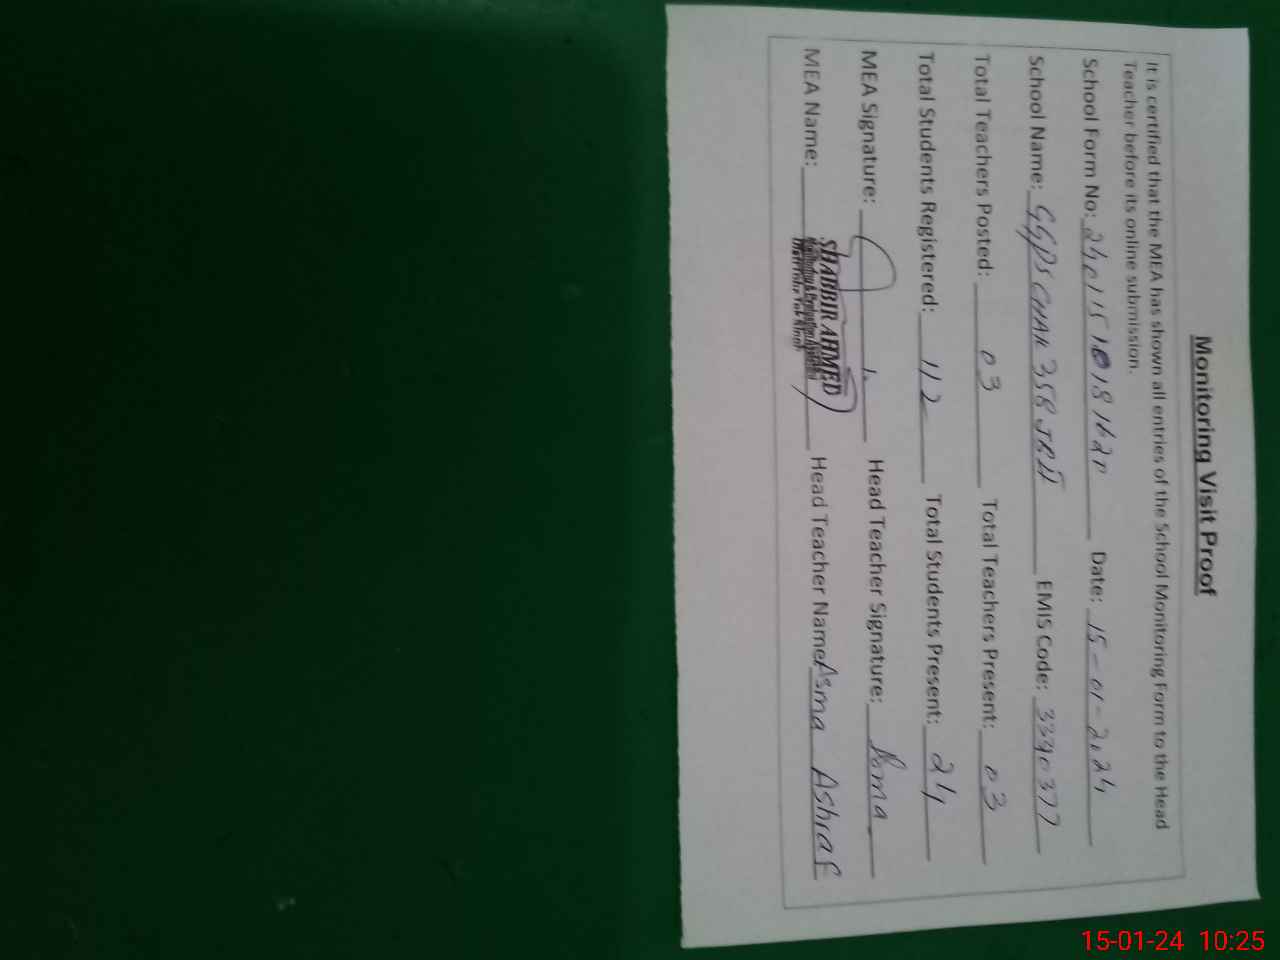 Monitoring Visit Proof
It is certified that the MEA has shown all entries of the School Monitoring Form to the Head
Teacher before its online submission.
School Form No: Date: 15-01-2024
School Name: GGPS CHAK 358 JB II EMIS Code: 33290377
Total Teachers Posted: 03 Total Teachers Present: 03
Total Students Registered: 112 Total Students Present: 24
MEA Signature: Head Teacher Signature: Asma
MEA Name: SHABBIR AHMED Head Teacher Name: Asma Ashraf
Monitoring & Evaluation Assistant
15-01-24 10:25